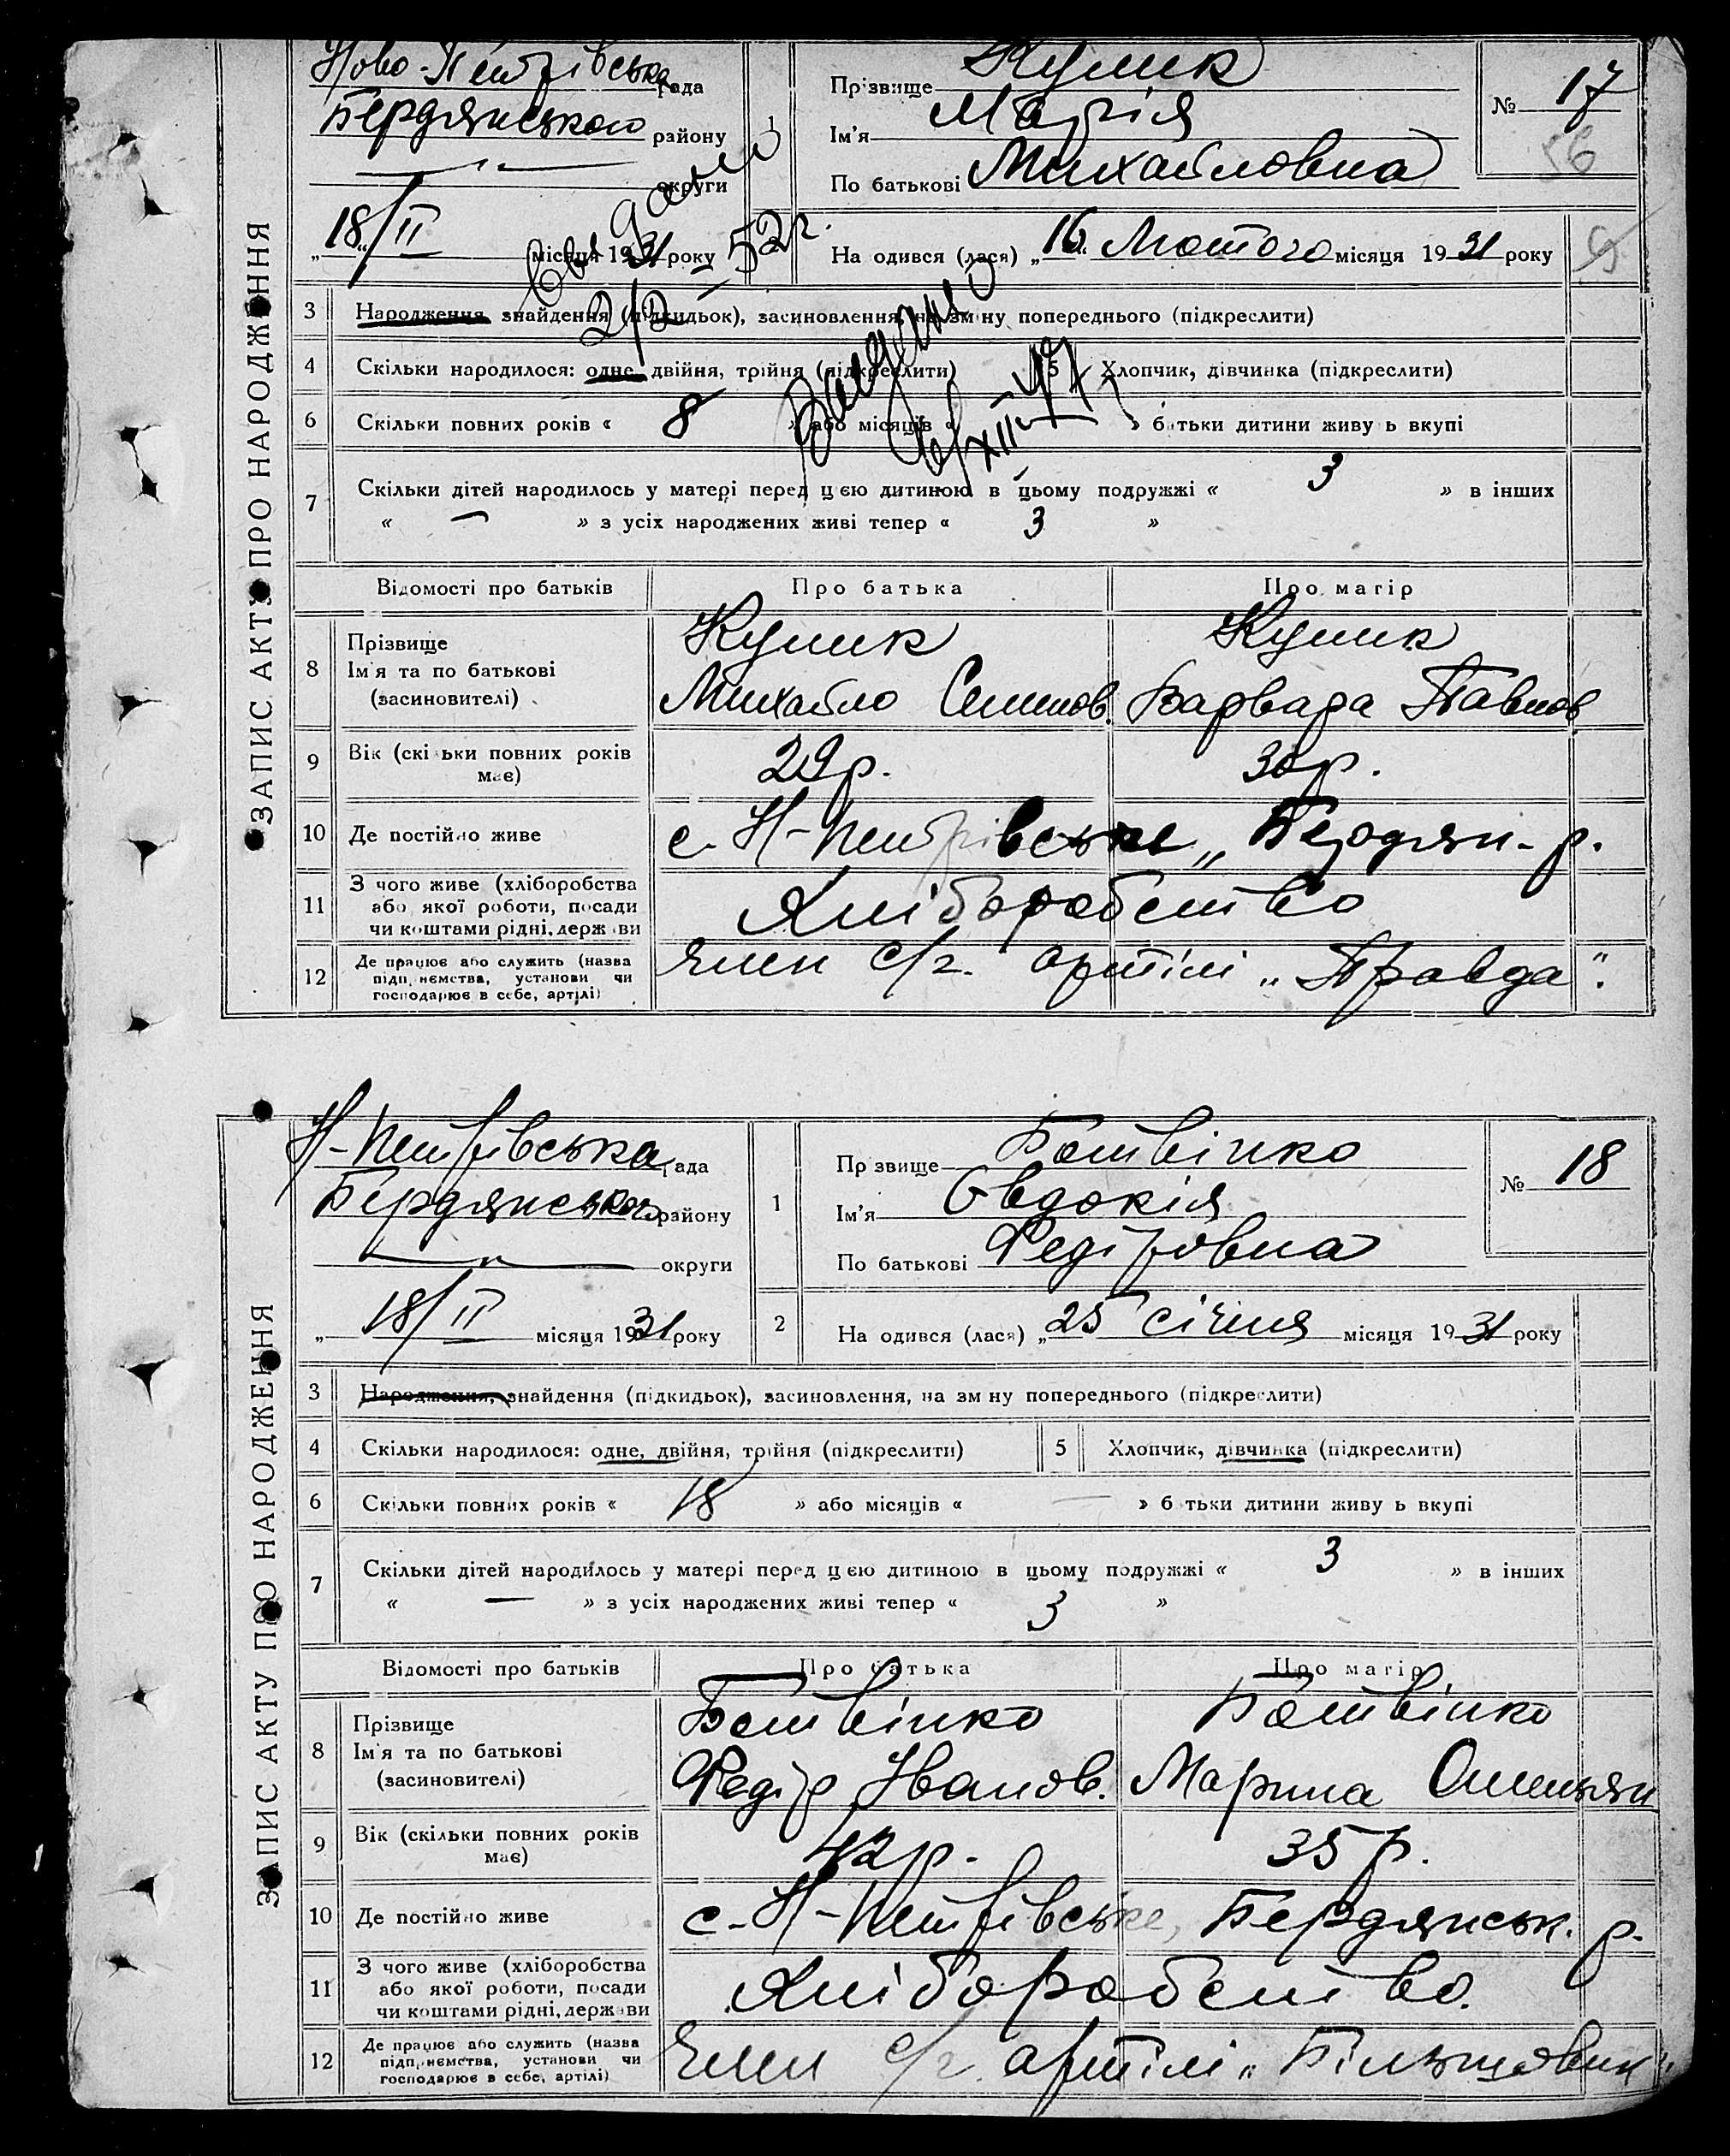 ЗАПИС АКТУ ПРО НАРОДЖЕННЯ
Ново-Петрівська рада
Бердянського району
округи
„18/II місяця 1931 року
1
Прізвище Кулик
Ім'я Марія
По батькові Михайловна
№ 17
56
2 На одився (лася) „16" Лютого місяця 1931 року
3 Народження, знайдення (підкидьок), засиновлення, на зміну попереднього (підкреслити)
4 Скільки народилося: одне, двійня, трійня (підкреслити) 5 Хлопчик, дівчинка (підкреслити)
6 Скільки повних років « 8 » або місяців « » батьки дитини живу ь вкупі
7 Скільки дітей народилось у матері перед цією дитиною в цьому подружжі « 3 » в інших
« — » з усіх народжених живі тепер « 3 »
Відомості про батьків Про батька Про матір
8 Прізвище
Ім'я та по батькові
(засиновителі)
Кулик Кулик
Михайло Семенов. Варвара Павлов
9 Вік (скі ьки повних років має) 29р. 30р.
10 Де постійно живе с. Н-Петрівське „ Бердян-р.
11 З чого живе (хліборобства
або якої роботи, посади
чи коштами рідні, держ ви
Хліборобство
12 Де працює або служить (назва
підприємства, установи чи
господарює в себе, артілі)
Член с/г. артілі „Правда".
ЗАПИС АКТУ ПРО НАРОДЖЕННЯ
Н-Петрівська рада
Бердянського району
округи
„18/II місяця 1931 року
1
Пр звище Ботвінко
Ім'я Овдокія
По батькові Федіровна
№ 18
2 На одився (лася) „25 січня місяця 1931 року
3 Народження, знайдення (підкидьок), засиновлення, на зм ну попереднього (підкреслити)
4 Скільки народилося: одне, двійня, трійня (підкреслити) 5 Хлопчик, дівчинка (підкреслити)
6 Скільки повних років « 18 » або місяців « — » б тьки дитини живу ь вкупі
7 Скільки дітей народилось у матері перед цією дитиною в цьому подружжі « 3 » в інших
« — » з усіх народжених живі тепер « 3 »
Відомості про батьків Про батька Про матір
8 Прізвище
Ім'я та по батькові
(засиновителі)
Ботвінко Ботвінко
Федір Іванов. Марина Омелян
9 Вік (скільки повних років має) 42р. 35р.
10 Де постійно живе с-Н-Петрівське, Бердянськ. р.
11 З чого живе (хліборобства
або якої роботи, посади
чи коштами рідні, держави
Хліборобство.
12 Де працює або служить (назва
підприємства, установи чи
господарює в себе, артілі)
Член с/г. артілі „Більшовик"